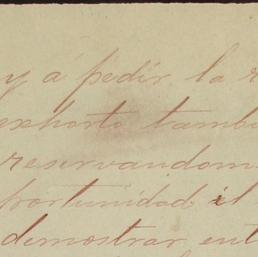 y á pedir la r
exhorto tambi
reservandom
portunidad. il
demostrar ent